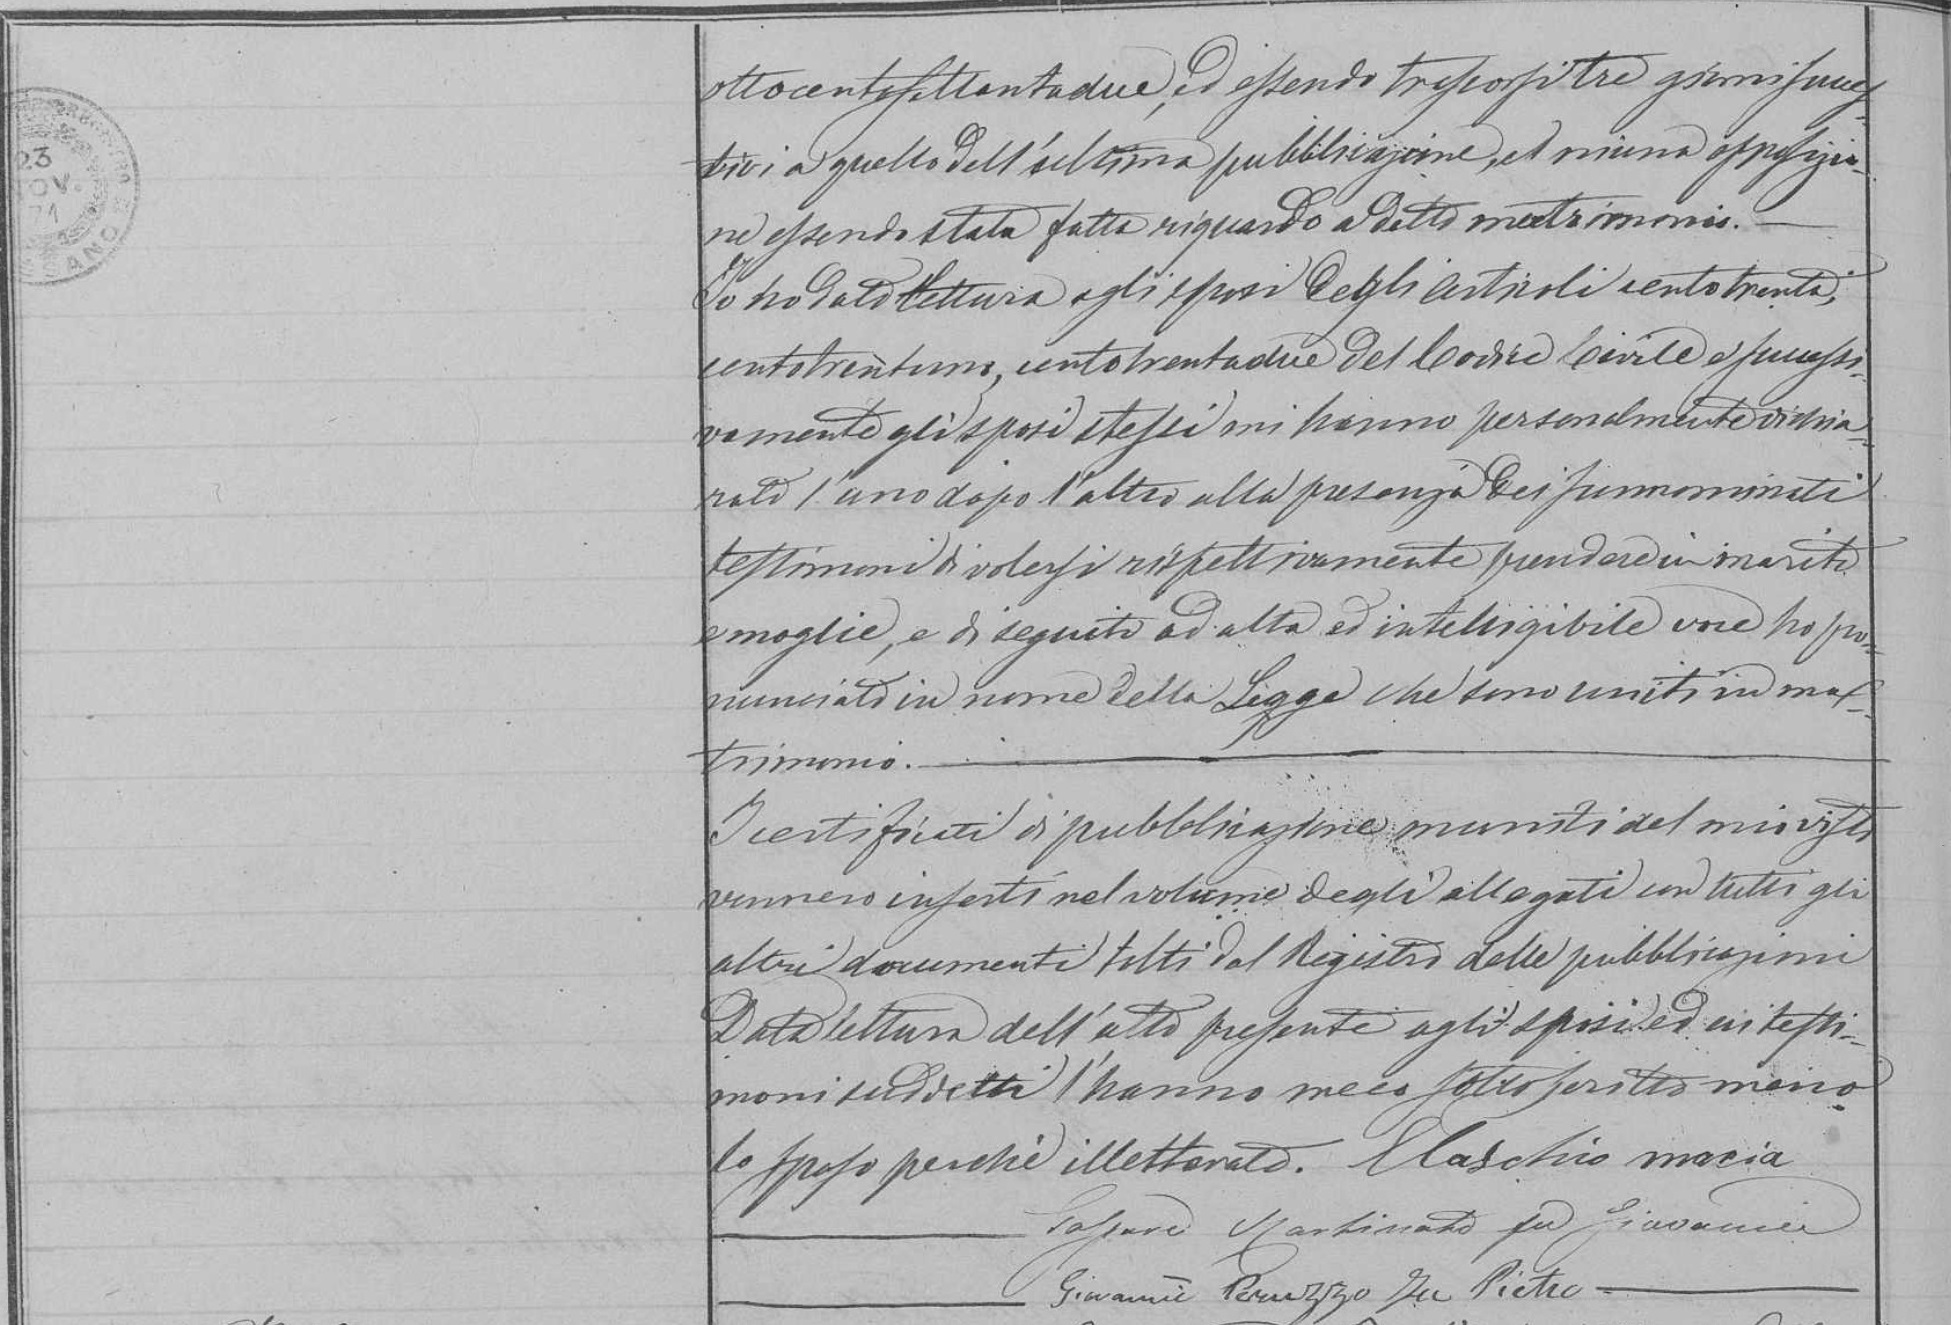 23
NOV.
71
ottocentosettantadue, ed essendo trascorsi tre giorni succes-
sivi a quello dell'ultima pubblicazione, et niuna opposizio-
ne essendo stata fatta riguardo a detto matrimonio.
Io ho dato lettura agli sposi degli articoli centotrenta,
centotrentuno, centotrentadue del Codice Civile e successi-
vamente gli sposi stessi mi hanno personalmente dichia-
rato l'uno dopo l'altro alla presenza dei sunnominati
testimoni di volersi rispettivamente prendere in marito
e moglie, e di seguito ad alta ed intelligibile voce ho pro-
nunciato in nome della Legge che sono uniti in ma-
trimonio.
I certificati di pubblicazione muniti del mio visto
vennero inserti nel volume degli allegati con tutti gli
altri documenti tolti dal Registro delle pubblicazioni
Data lettura dell'atto presente agli sposi ed ai testi-
moni suddetti l'hanno meco sottoscritto meno
lo sposo perchè illetterato. Maschio maria
Gaspare Martinato fu Giovanni
Giovanni Peruzzo fu Pietro